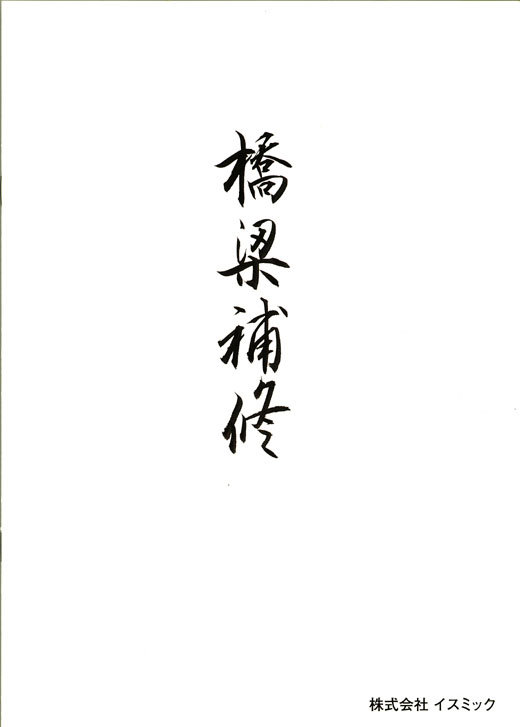 橋梁補修
株式会社 イスミック